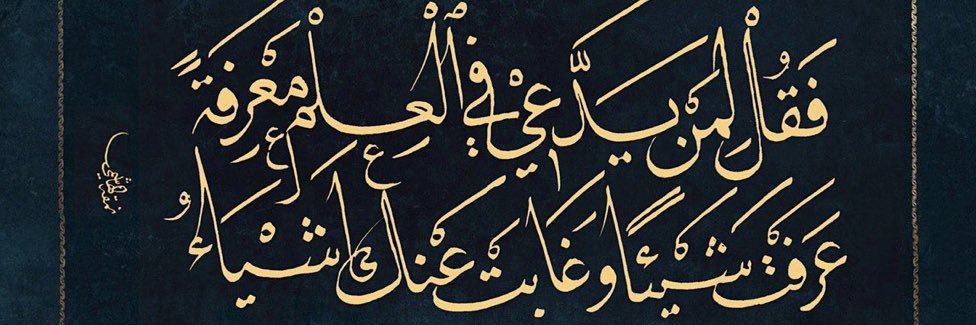 فَقُلْ لِمَنْ يَدَّعِي فِي ٱلْعِلْمِ مَعْرِفَةً
عَرَفْتَ شَيْئًا وَغَابَتْ عَنْكَ أَشْيَاءُ